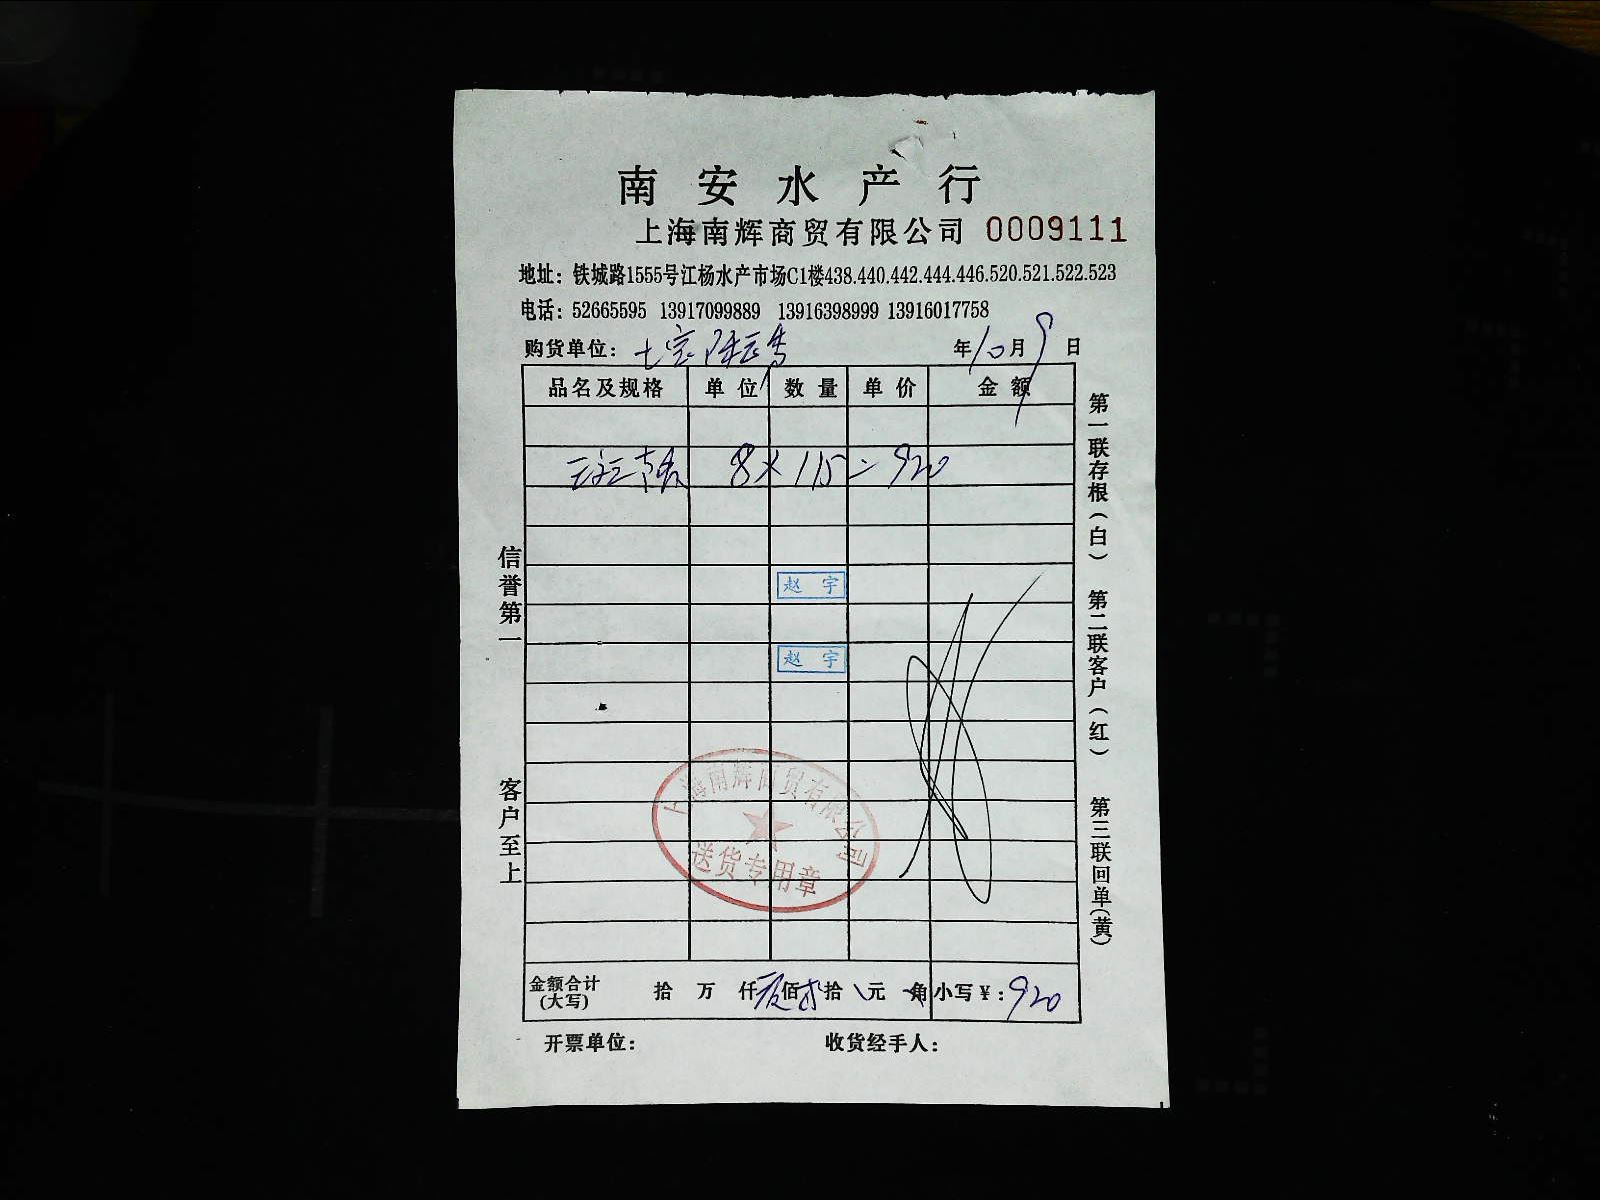 南安水产行
上海南辉商贸有限公司 0009111
地址：铁城路1555号江杨水产市场C1楼438.440.442.444.446.520.521.522.523
电话：52665595 13917099889 13916398999 13916017758
购货单位：七宝 年10月9日
品名及规格 单位 数量 单价 金额
8×115=920
赵宇
赵宇
上海南辉商贸有限公司
送货专用章
金额合计(大写) 拾 万 仟 佰 拾 元 角 小写￥：920
开票单位： 收货经手人：
信誉第一
客户至上
第一联存根（白）
第二联客户（红）
第三联回单（黄）